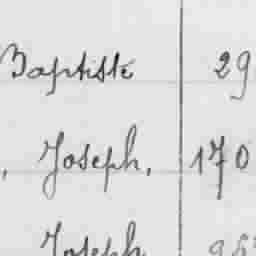 Baptiste 29
, Joseph, 170
Joseph